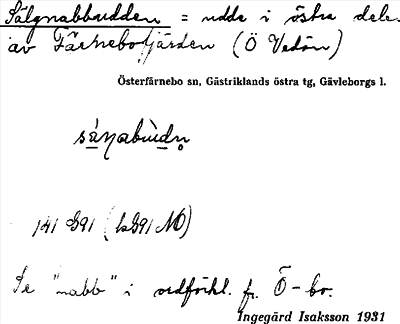 Sälgnabbudden = udde i östra dele
av Färnebofjärden (Ö Vedön)
Österfärnebo sn, Gästriklands östra tg, Gävleborgs l.
141 G91 (
Se "nabb" i ordförkl. fr. Ö-bo.
Ingegärd Isaksson 1931